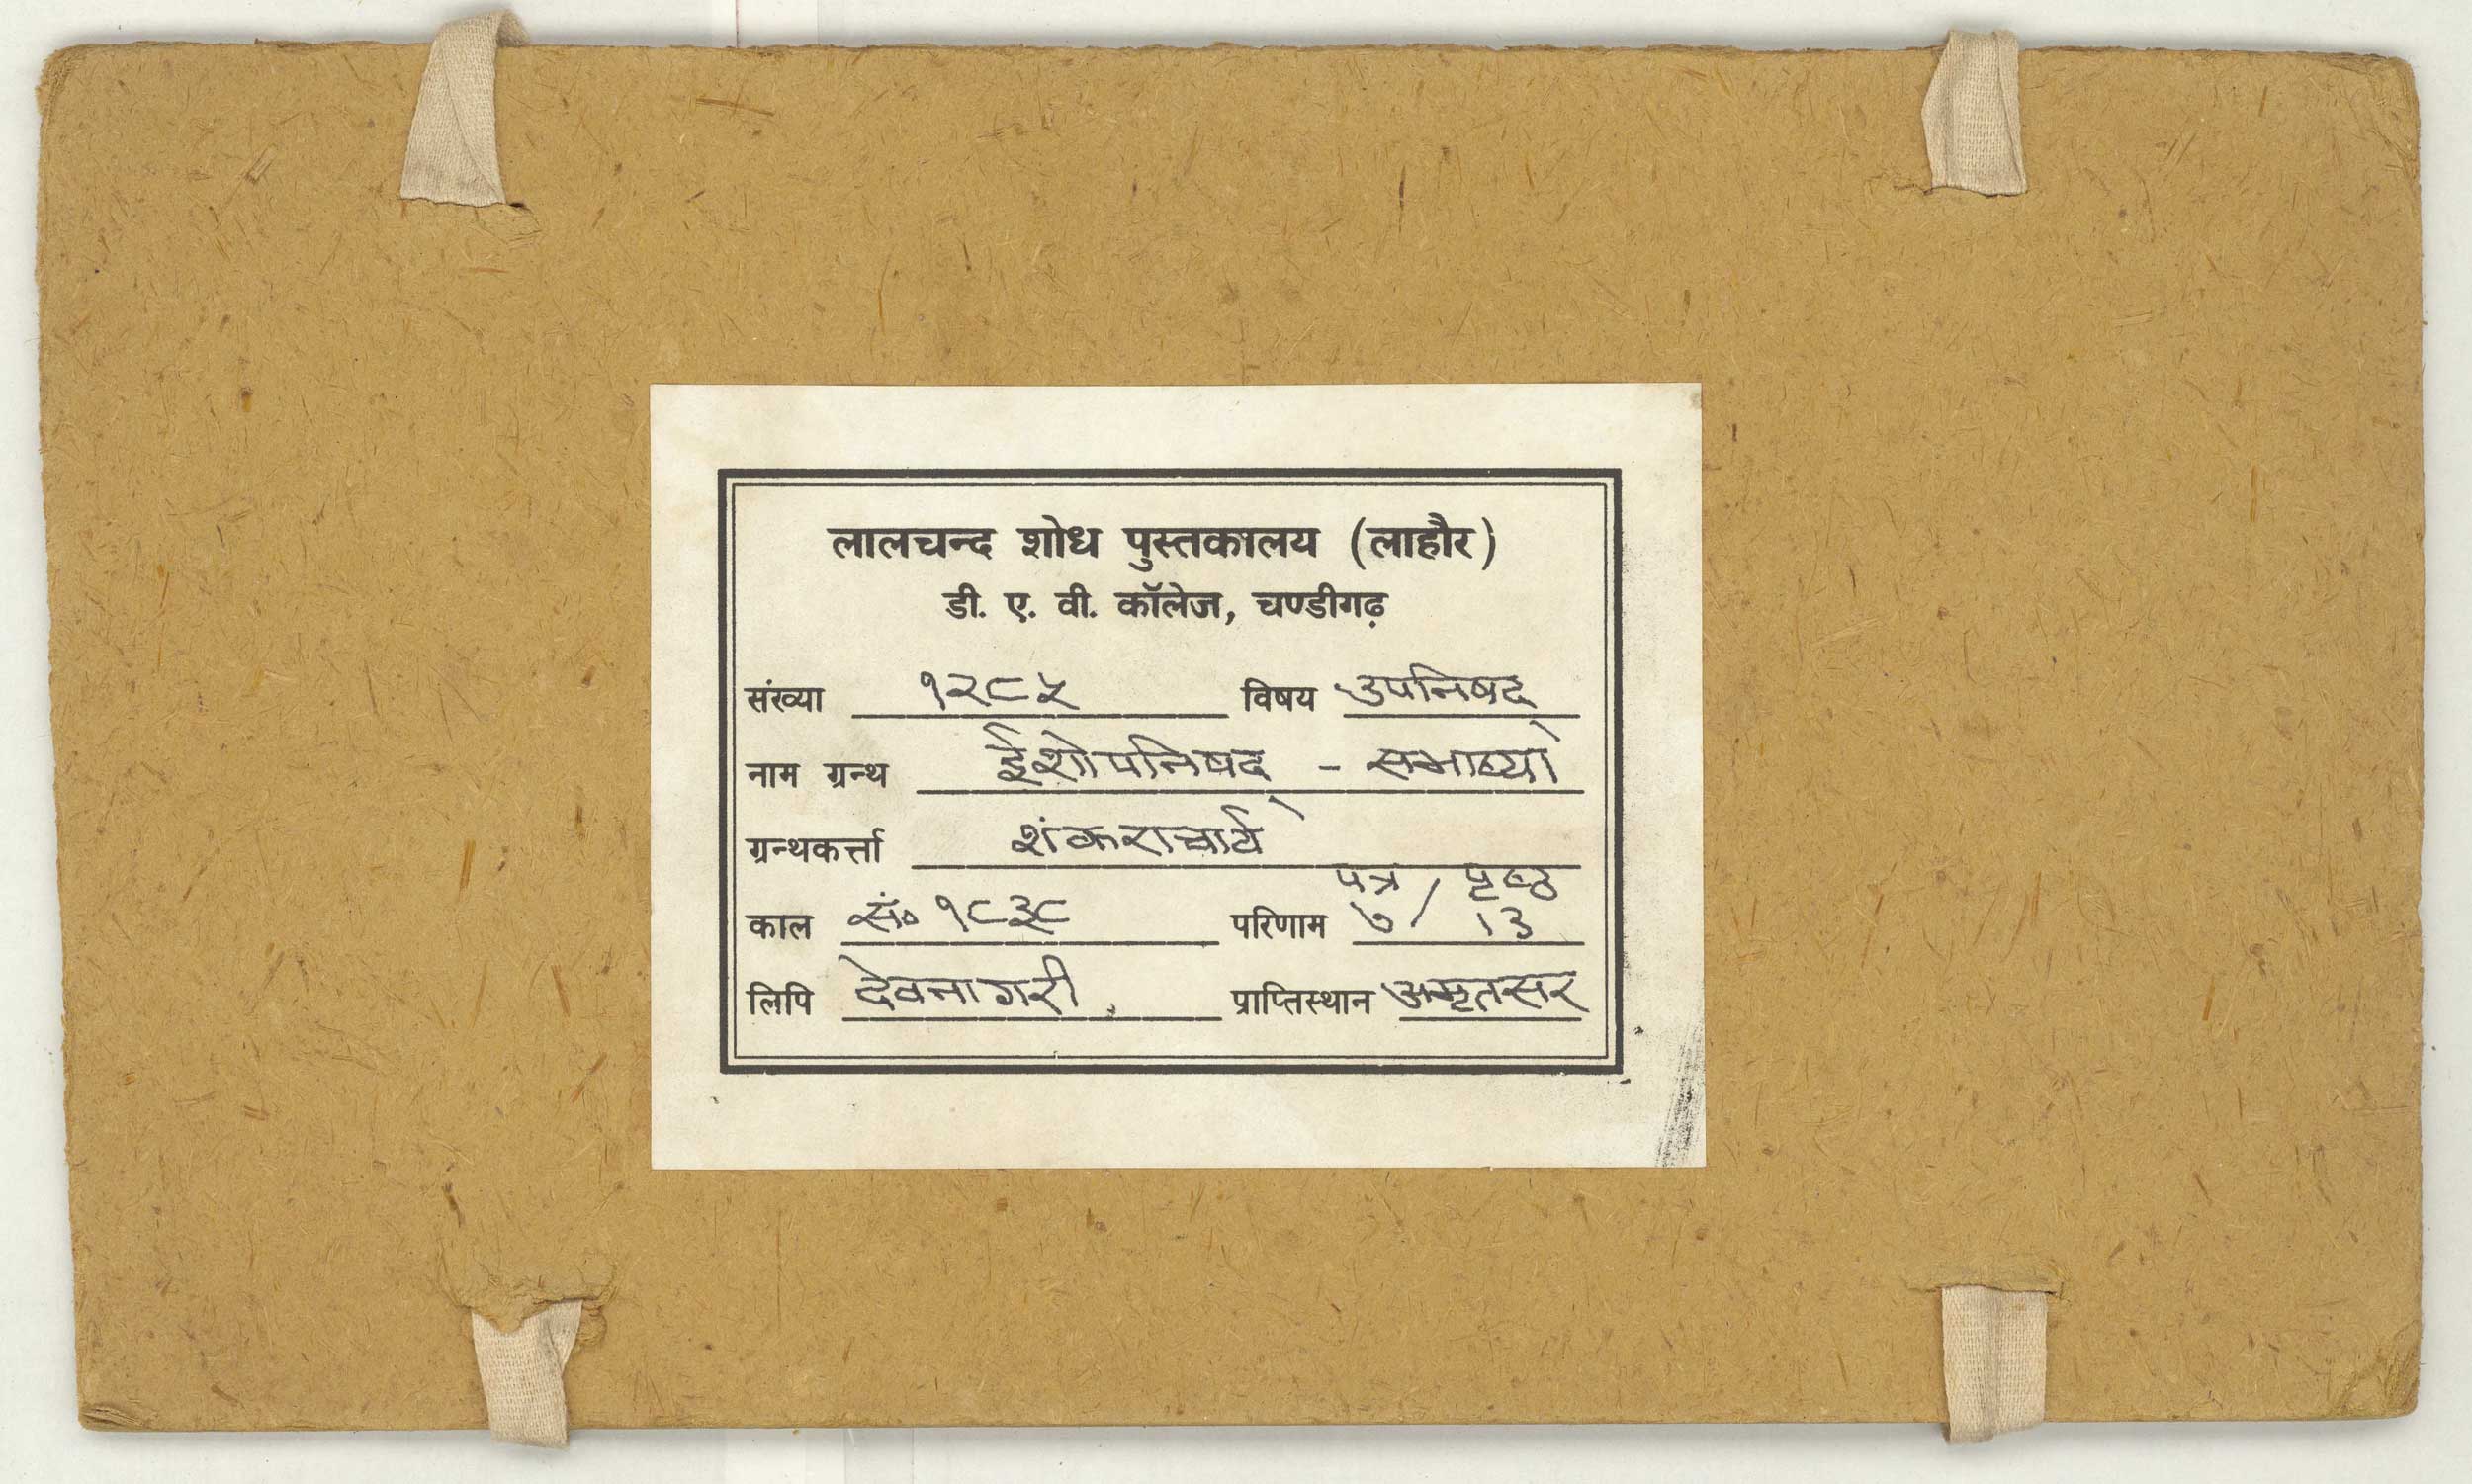 लालचन्द शोध पुस्तकालय (लाहौर)
डी. ए. वी. कॉलेज, चण्डीगढ़
संख्या १२८५ विषय उपनिषद्
नाम ग्रन्थ ईशोपनिषद् - सभाष्यो
ग्रन्थकर्त्ता शंकराचार्य
पत्र / पृष्ठ
काल सं० १८३८ परिणाम ७ / 13
लिपि देवनागरी प्राप्तिस्थान अमृतसर